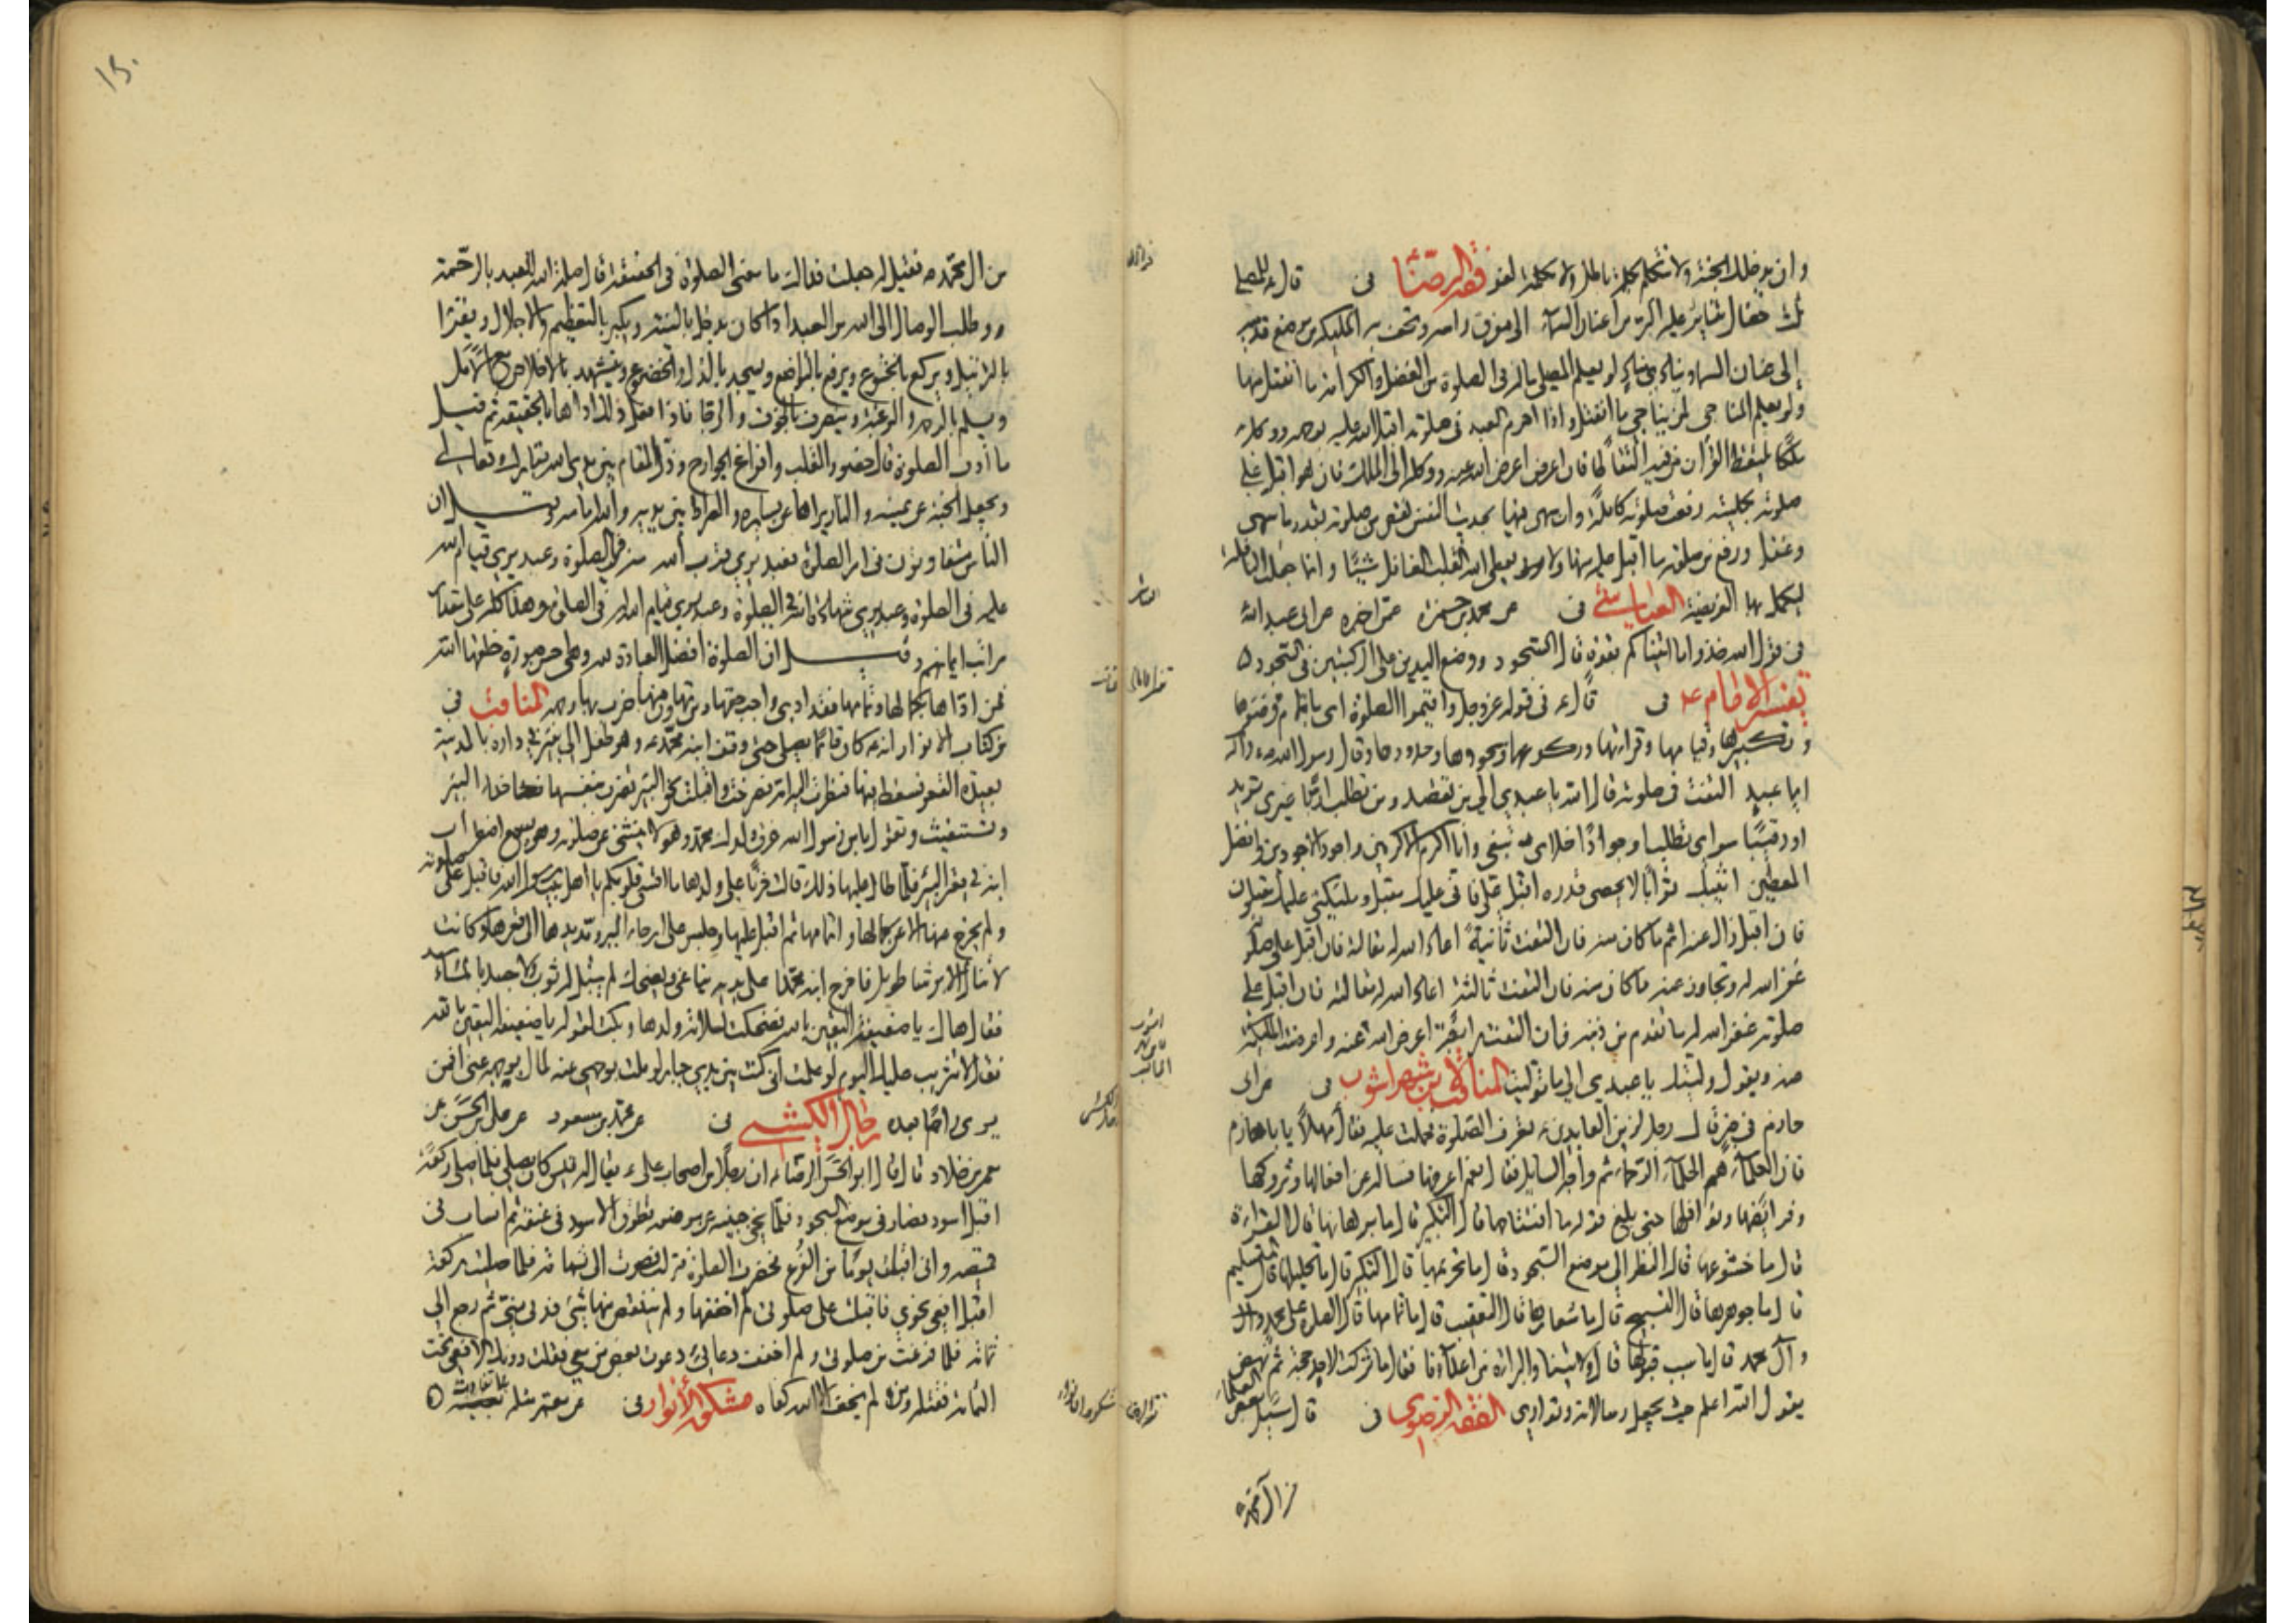 وان يدخلك الجنة ولا تتكلم بكلمة باطل ولا بكلمة لغو فقه الرضا في قال ع للمصلي
ثلث خصال يتناثر عليه البر من اعنان السماء الى مفرق راسه وتحف به الملئكة من موضع قدميه
إلى عنان السماء ويناديه مناد لو يعلم المصلي ماله في الصلوة من الفضل والكرامة ما انفتل منها
ولو يعلم المناجي لمن يناجي ما انفتل واذا احرم العبد في صلوته اقبل الله عليه بوجهه ووكل به
ملكا يلتقط القرآن من فيه التقاطا فان اعرض اعرض الله عنه ووكله الى الملك فان هو اقبل على
صلوته بكليته رفعت صلوته كاملة وان سهى فيها بحديث النفس نقص من صلوته بقدر ما سهى
وغفل ورفع من صلوته ما اقبل عليه منها ولا يعطى الله القلب الغافل شيئا وانما جعلت النافلة
ليكمل بها الفريضة العياشي في عن محمد بن حمزة عمن اخبره عن ابي عبد الله
في قول الله خذوا ما اتيناكم بقوة قال السجود ووضع اليدين على الركبتين في السجود
تفسير الامام ع في قال ع في قوله عز وجل واقيموا الصلوة اي باتمام وضوءها
وتكبيرها وقيامها وقراءتها وركوعها وسجودها وحدودها وقال رسول الله ص وآله
ايما عبد التفت في صلوته قال الله يا عبدي الى من تقصد ومن تطلب اربا غيري تريد
او رقيبا سواي تطلب او جوادا خلاي تبتغي وانا اكرم الاكرمين واجود الاجودين وافضل
المعطين اثيبك ثوابا لا يحصى قدره اقبل علي فاني عليك مقبل وملئكتي عليك مقبلون
فان اقبل زال عنه اثم ما كان منه فان التفت ثانية اعاد الله له مقالته فان اقبل على صلوته
غفر الله له وتجاوز عنه ما كان منه فان التفت ثالثة اعاد الله له مقالته فان اقبل على
صلوته غفر الله له ما تقدم من ذنبه فان التفت رابعة اعرض الله عنه واعرضت الملئكة
عنه ويقول وليتك يا عبدي الى ما توليت المناقب لابن شهراشوب في عن ابي
حازم في خبر قال رجل لزين العابدين ع تعرف الصلوة فحملت عليه فقال مهلا يا با حازم
فان العلماء هم الحلماء الرحماء ثم واجه السايل فقال نعم اعرفها فساله عن افعالها وتروكها
وفرائضها ونوافلها حتى بلغ قوله ما افتتاحها قال التكبير قال ما برهانها قال القراءة
قال ما خشوعها قال النظر الى موضع السجود قال ما تحريمها قال التكبير قال ما تحليلها قال التسليم
قال ما جوهرها قال التسبيح قال ما شعارها قال التعقيب قال ما تمامها قال الصلوة على محمد
وآل محمد قال ما سبب قبولها قال ولايتنا والبراءة من اعدائنا فقال ما تركت لاحد حجة ثم نهض
يقول الله اعلم حيث يجعل رسالاته وتوارى الفقه الرضوي في قال سئل بعض العلماء
من آل محمد ص
من آل محمد ص فقيل له جعلت فداك ما معنى الصلوة في الحقيقة قال صلة الله للعبد بالرحمة
وطلب الوصال الى الله من العبد اذا كان يدخل بالنية ويكبر بالتعظيم والاجلال ويقرا
بالترتيل ويركع بالخشوع ويرفع بالتواضع ويسجد بالذل والخضوع ويتشهد بالاخلاص مع الامل
ويسلم بالرحمة والرغبة وينصرف بالخوف والرجا فاذا فعل ذلك اداها بالحقيقة ثم قيل
ما آداب الصلوة قال حضور القلب وافراغ الجوارح وذل المقام بين يدي الله تبارك وتعالى
ويجعل الجنة عن يمينه والنار يراها عن يساره والصراط بين يديه والله امامه وقيل ان
الناس متفاوتون في امر الصلوة فعبد يرى قرب الله منه في الصلوة وعبد يرى قيام الله
عليه في الصلوة وعبد يرى شهادة الله في الصلوة وعبد يرى قيام الله له في الصلوة وهذا كله على مقدار
مراتب ايمانهم وقيل ان الصلوة افضل العبادة لله وهي احسن صورة خلقها الله
فمن اداها بكمالها وتمامها فقد ادى واجب حقها ومن تهاون فيها ضرب بها وجهه المناقب في
من كتاب الانوار انه ع كان قائما يصلي حتى وقف ابنه محمد ع وهو طفل الى بئر في داره بالمدينة
بعيدة القعر فسقط فيها فنظرت اليه امه فصرخت واقبلت نحو البئر تضرب بنفسها حذاء البئر
وتستغيث وتقول يابن رسول الله غرق ولدك محمد وهو لا ينثني عن صلوته وهو يسمع اضطراب
ابنه في قعر البئر فلما طال عليها ذلك قالت حزنا على ولدها ما اقسى قلوبكم يا اهل بيت رسول الله فاقبل على صلوته
ولم يخرج عنها الا عن كمالها واتمامها ثم اقبل عليها وجلس على ارجاء البئر ومد يده الى قعرها وكانت
لا تنال الا برشا طويل فاخرج ابنه محمدا على يديه يناغى ويضحك لم يبتل له ثوب ولا جسد بالماء
فقال هاك يا ضعيفة اليقين بالله فضحكت لسلامة ولدها وبكت لقوله يا ضعيفة اليقين بالله
فقال لا تثريب عليك اليوم لو علمت اني كنت بين يدي جبار لو ملت بوجهي عنه لمال بوجهه عني افمن
يرى راحما بعده رجال الكشي في عن محمد بن مسعود عن علي بن الحسن عن
معمر بن خلاد قال قال ابو الحسن الرضا ع ان رجلا من اصحاب علي ع يقال له قيس كان يصلي فلما صلى ركعة
اقبل اسود فصار في موضع السجود فلما نحى جبينه عن موضعه تطوق الاسود في عنقه ثم انساب في
قميصه واني اقبلت يوما من الفرع فحضرت الصلوة فنزلت فصرت الى ثمامة فلما صليت ركعة
اقبل افعى نحوي فاقبلت على صلوتي لم اخففها ولم ينتقص منها شيء فدنى مني ثم رجع الى
ثمامة فلما فرغت من صلوتي ولم اخفف دعائي دعوت بعض من معي فقلت دونك الافعى تحت
الثمامة فقتله ومن لم يخف الا الله كفاه مشكوة الأنوار في عن معمر مثله